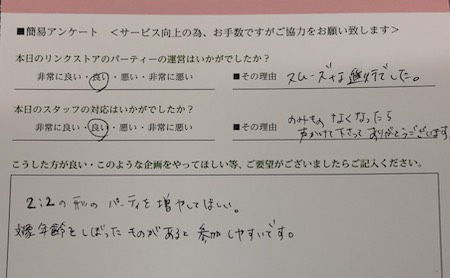 ■簡易アンケート ＜サービス向上の為、お手数ですがご協力をお願い致します＞
本日のリンクストアのパーティーの運営はいかがでしたか？
非常に良い・良い・悪い・非常に悪い ■その理由 スムーズな進行でした。
本日のスタッフの対応はいかがでしたか？
非常に良い・良い・悪い・非常に悪い ■その理由 のみもの なくなったら
声かけて下さって ありがとうございます
こうした方が良い・このような企画をやってほしい等、ご要望がございましたらご記入ください。
2:2の形のパーティを増やしてほしい。
対象年齢をしぼったものがあると参加しやすいです。